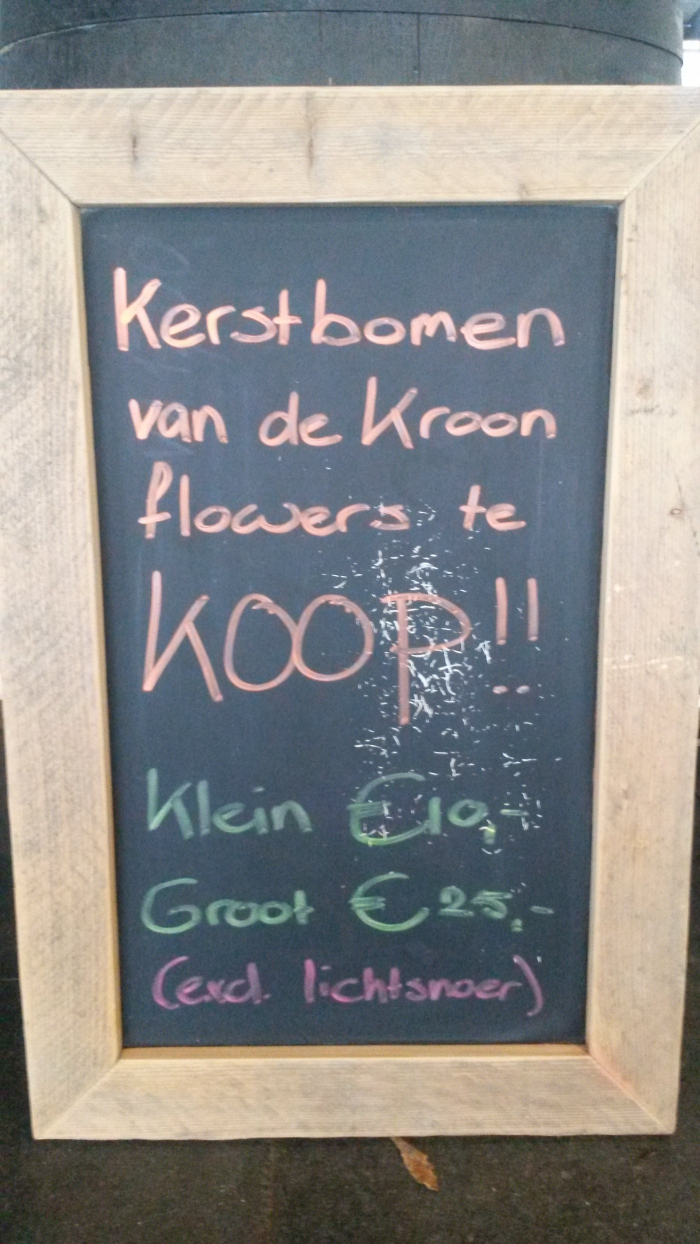 Kerstbomen
van de Kroon
flowers te
KOOP!!
Klein €10,-
Groot €25,-
(excl. lichtsnoer)